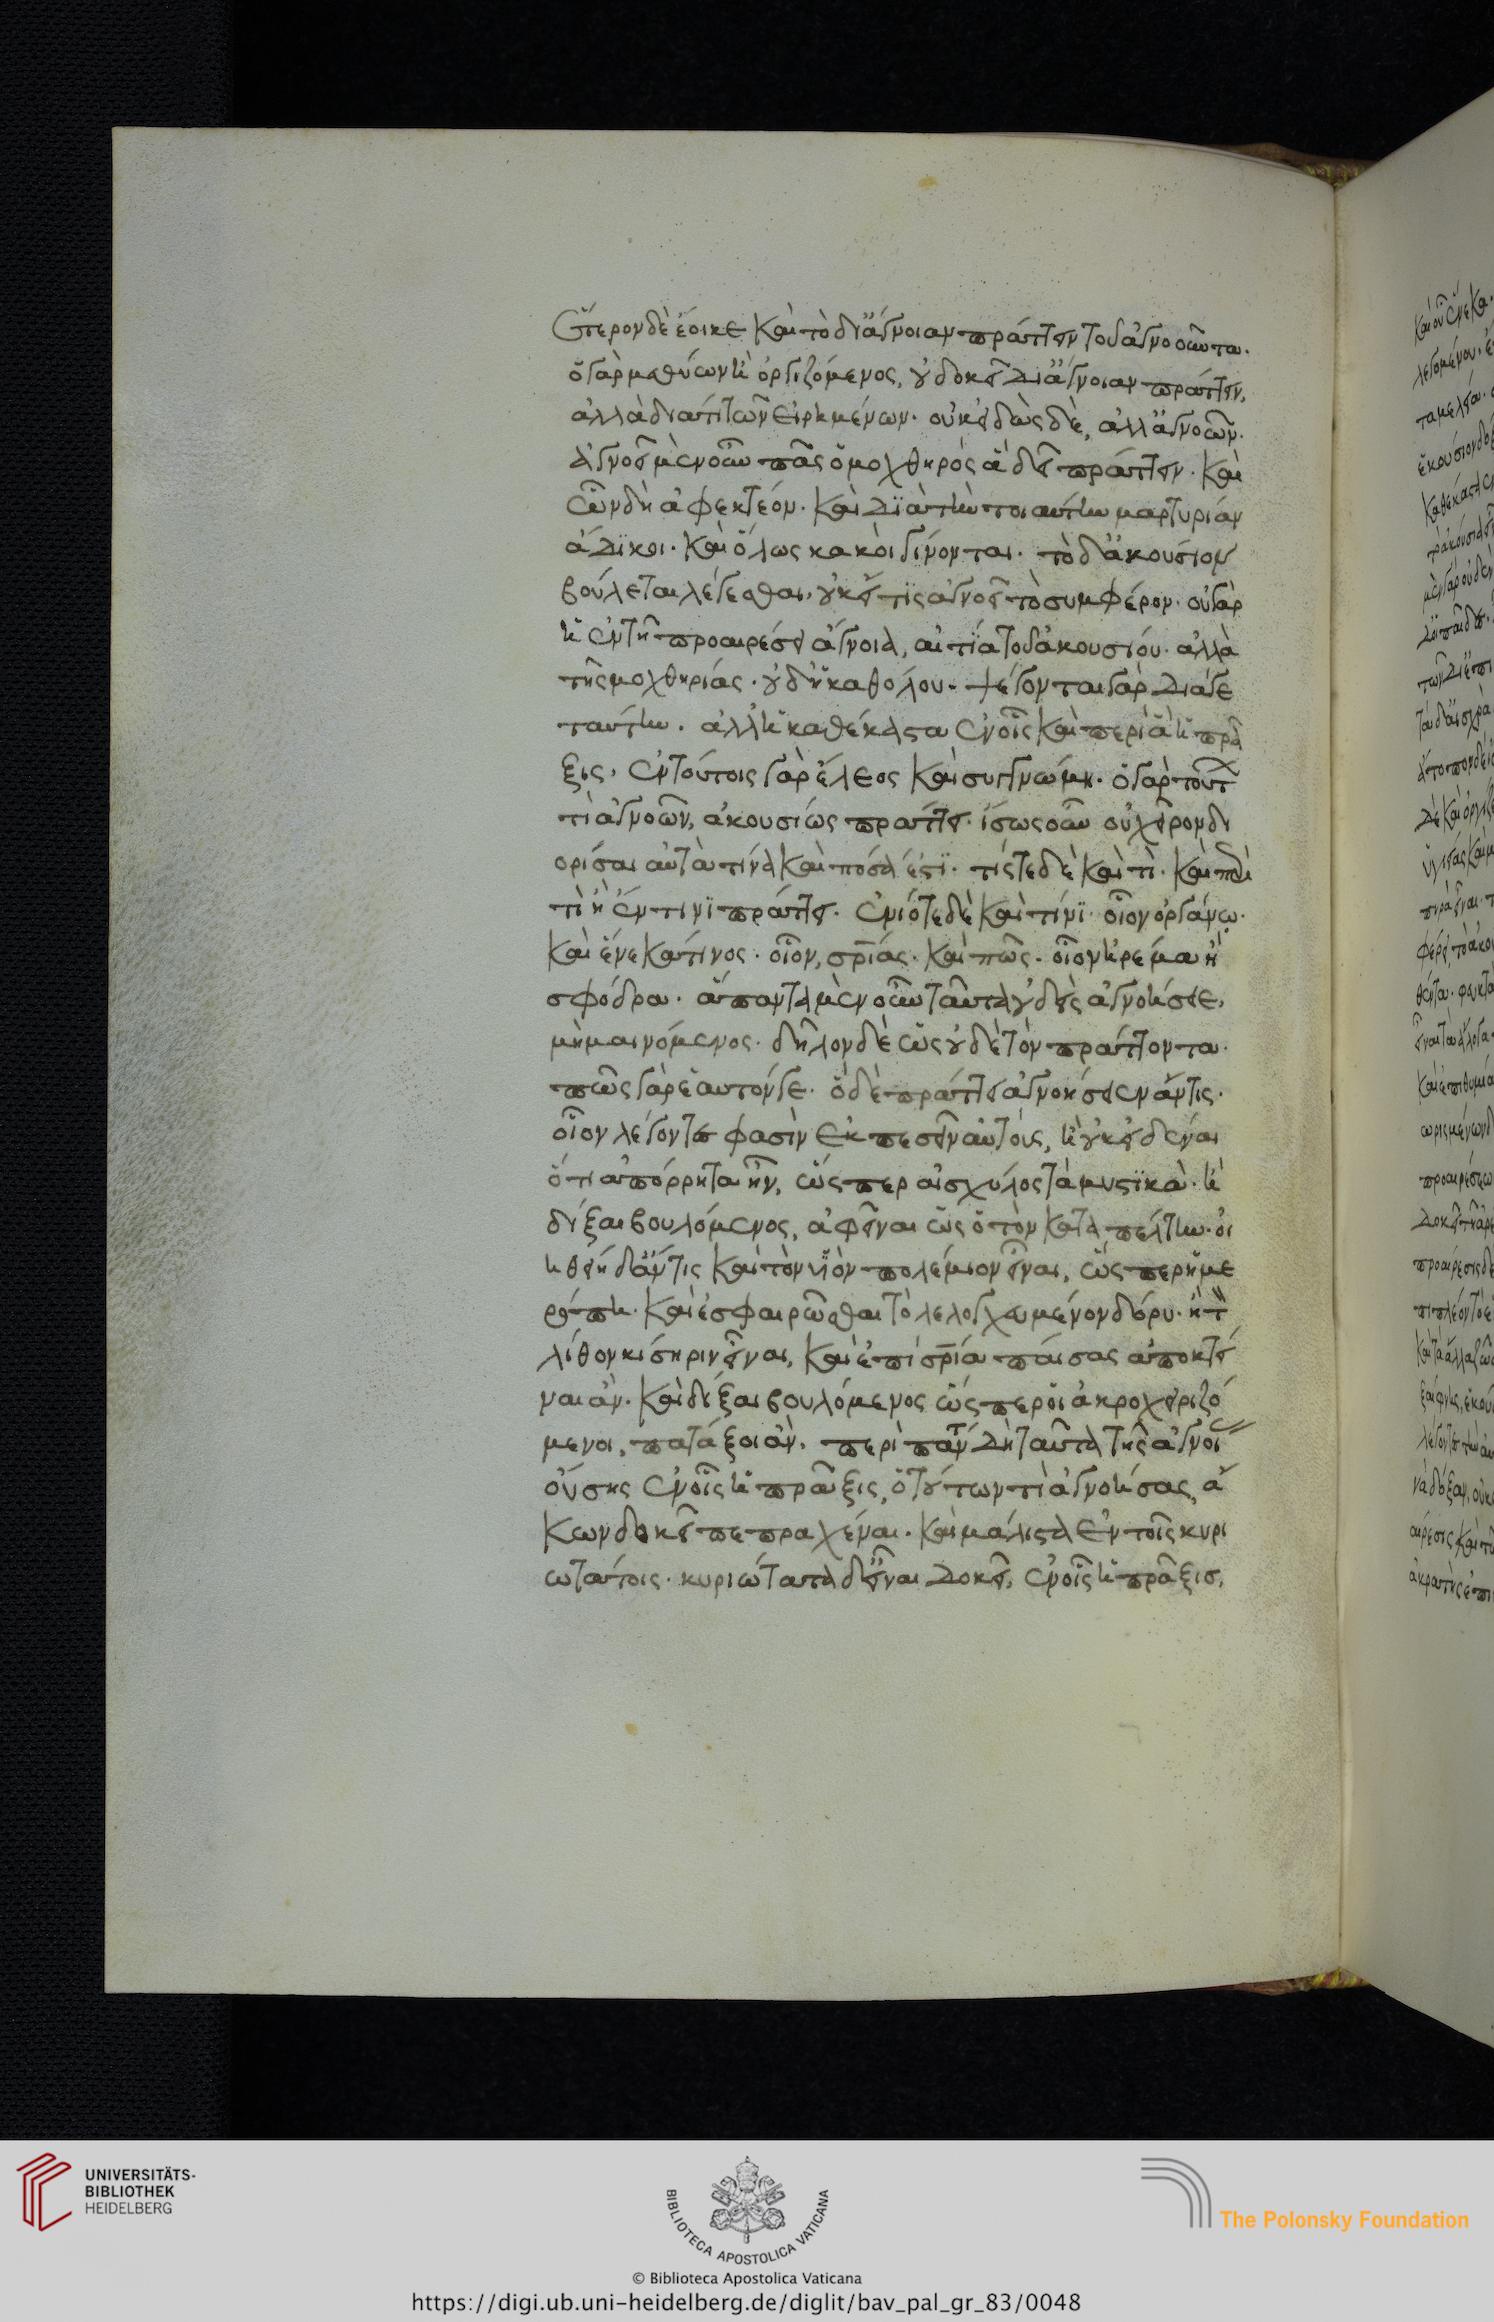 ἕτερον δὲ ἔοικε καὶ τὸ δι' ἄγνοιαν πράττειν τοῦ ἀγνοοῦντα.
ὁ γὰρ μεθύων ἢ ὀργιζόμενος, οὐ δοκεῖ δι' ἄγνοιαν πράττειν,
ἀλλὰ διά τι τῶν εἰρημένων· οὐκ εἰδὼς δὲ, ἀλλ' ἀγνοῶν.
ἀγνοεῖ μὲν οὖν πᾶς ὁ μοχθηρὸς ἃ δεῖ πράττειν· καὶ
ὧν δὴ ἀφεκτέον· καὶ διὰ τὴν τοιαύτην μαρτυρίαν
ἄδικοι· καὶ ὅλως κακοὶ γίνονται· τὸ δ' ἀκούσιον
βούλεται λέγεσθαι, οὐκ εἴ τις ἀγνοεῖ τὸ συμφέρον· οὐ γὰρ
ἡ ἐν τῇ προαιρέσει ἄγνοια, αἰτία τοῦ ἀκουσίου· ἀλλὰ
τῆς μοχθηρίας· οὐδ' ἡ καθόλου· ψέγονται γὰρ διά γε
ταύτην· ἀλλ' ἡ καθέκαστα ἐν οἷς καὶ περὶ ἃ ἡ πρᾶ
ξις, ἐν τούτοις γὰρ ἔλεος καὶ συγγνώμη· ὁ γὰρ τούτ
τὶ ἀγνοῶν, ἀκουσίως πράττει· ἴσως οὖν οὐ χεῖρον δι
ορίσαι αὐτὰ τίνα καὶ πόσα ἐστί· τίς τε δὲ καὶ τί· καὶ περὶ
τὶ ἢ ἔν τινι πράττει· ἐνιότε δὲ καὶ τίνι· οἷον ὀργάνῳ·
καὶ ἕνεκα τίνος· οἷον, σρίας· καὶ πῶς· οἷον ἠρέμα ἢ
σφόδρα· ἅπαντα μὲν οὖν ταῦτα οὐδεὶς ἀγνοήσειε,
μὴ μαινόμενος· δῆλον δὲ ὡς οὐδὲ τὸν πράττοντα·
πῶς γὰρ ἑαυτόν γε· ὁ δὲ πράττει ἀγνοήσειεν ἄν τις·
οἷον λέγοντες φασὶν ἐκπεσεῖν αὐτοὺς, ἢ οὐκ εἰδέναι
ὅτι ἀπόρρητα ἦν, ὥσπερ αἰσχύλος τὰ μυστικὰ· ἢ
δεῖξαι βουλόμενος, ἀφεῖναι ὡς ὁ τὸν καταπέλτην· οἰ
ηθείη δ' ἄν τις καὶ τὸν υἱὸν πολέμιον εἶναι, ὥσπερ ἡ με
ρόπη· καὶ ἐσφαιρῶσθαι τὸ λελογχωμένον δόρυ· ἢ τὸν
λίθον κίσηριν εἶναι, καὶ ἐπὶ σρία παίσας ἀποκτεί
ναι ἄν· καὶ δεῖξαι βουλόμενος ὥσπερ οἱ ἀκροχειριζό
μενοι, πατάξοι ἄν· περὶ πάντ δὴ ταῦτα τῆς ἀγνοί
ούσης ἐν οἷς ἡ πρᾶξις, ὁ τούτων τὶ ἀγνοήσας, ἄ
κων δοκεῖ πεπραχέναι· καὶ μάλιστα ἐν τοῖς κυρι
ωτάτοις· κυριώτατα δ' εἶναι δοκεῖ, ἐν οἷς ἡ πρᾶξις,
UNIVERSITÄTS-
BIBLIOTHEK
HEIDELBERG
BIBLIOTECA APOSTOLICA VATICANA
© Biblioteca Apostolica Vaticana
The Polonsky Foundation
https://digi.ub.uni-heidelberg.de/diglit/bav_pal_gr_83/0048